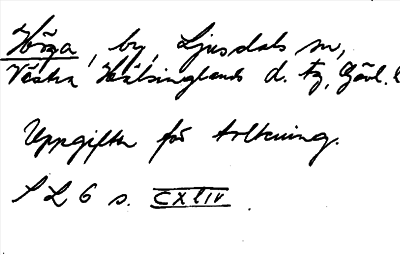 Hörga, by, Ljusdals sn,
Västra Hälsinglands d. tg, Gävl. l
Uppgifter för tolkning.
S L G s. CXLIV.